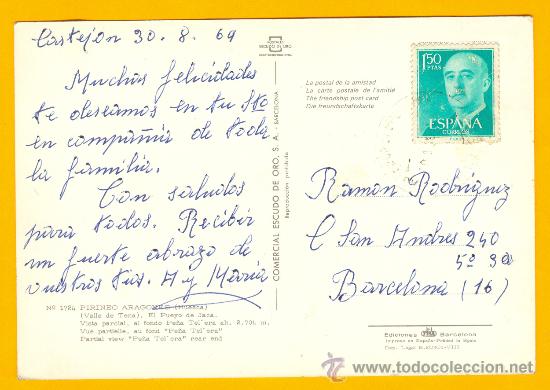 Castejón 30.8.69
Muchas felicidades
te deseamos en tu Sto
en compañia de toda
la familia.
Con saludos
para todos. Recibir
un fuerte abrazo de
vuestros tios. A y María
Nº 1784 PIRINEO ARAGONES (Huesca)
(Valle de Tena). El Pueyo de Jaca.
Vista parcial, al fondo Peña
Vue partielle, au fond "Peña
Partial view "Peña rear end
POSTALES
ESCUDO DE ORO
COMERCIAL ESCUDO DE ORO, S. A. - BARCELONA
Reproducción prohibida
La postal de la amistad
La carte postale de l'amitié
The friendship post card
Die freundschaftskarte
1'50
PTAS
ESPAÑA
CORREOS
Ramon Rodriguez
C San Andres 240
5º 3ª
Barcelona (16)
Ediciones Barcelona
Impreso en España-Printed in Spain
Dep. Legal B.
todocoleccion.net